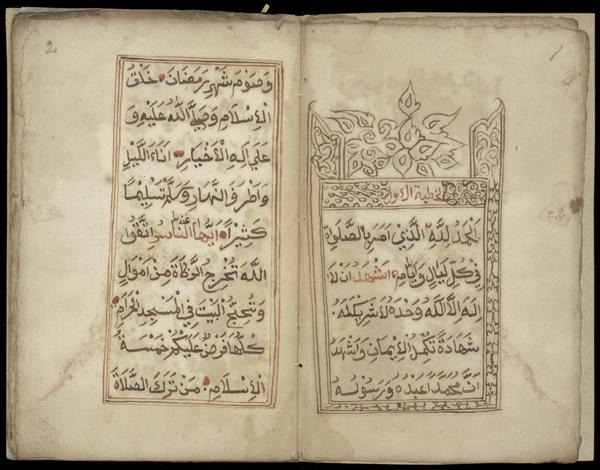 الخطبة الاول
الحمد لله الذي امر بالصلوة
في كل ليال وايام اشهد ان لا
اله الا الله وحده لا شريك له
شهادة تكمل الايمان واشهد
ان محمدا عبده ورسوله
1
2
وصوم شهر رمضان خلق
الاسلام وصلى الله عليه و
على اله الاخيار اناء الليل
واطراف النهار وسلم تسليما
كثيرا ايها الناس اتقوا
الله تخرج الزكاة من اموال
وتحج البيت في المسجد الحرام
كلها فرض عليكم خمسة
الاسلام من ترك الصلاة